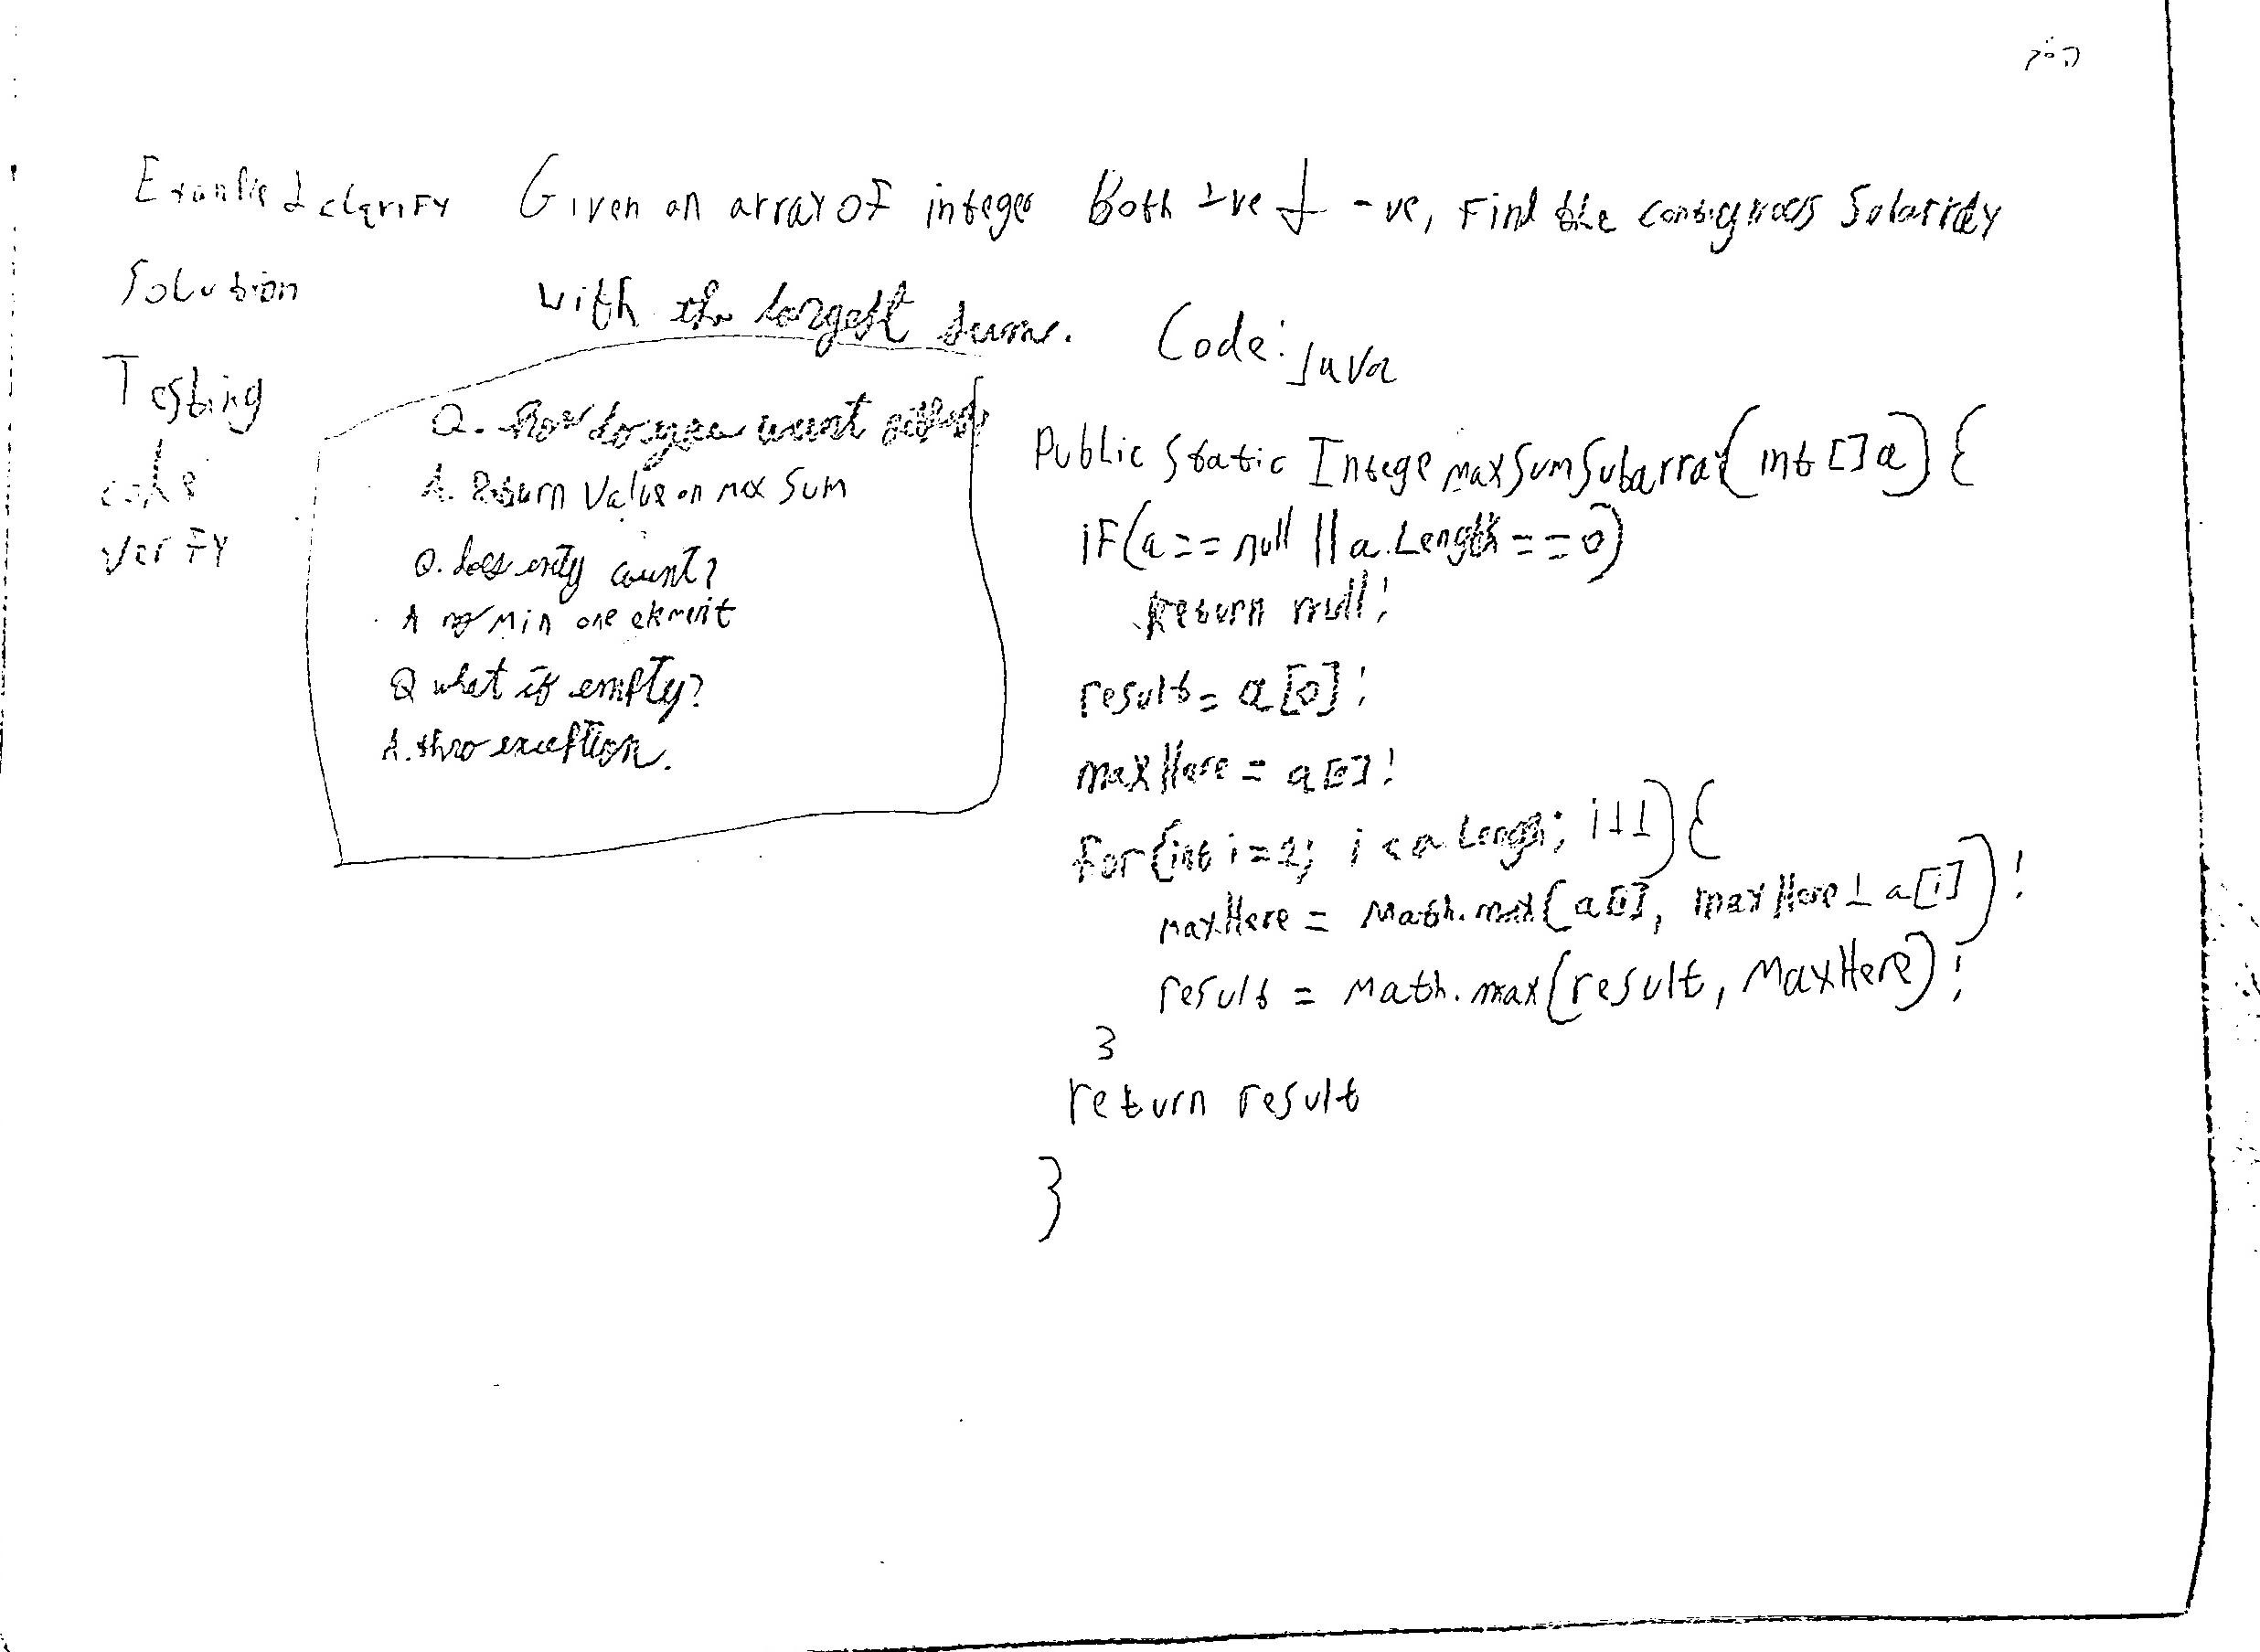 Example & clarify
Solution
Testing
code
verify
Given an array of integer Both +ve & -ve, Find the contiguous Subarray
with the largest sum.
Q. How do you want
A. Return Value on max Sum
Q. does emty count?
A no min one element
Q what if empty?
A. thro exception.
Code: Java
Public Static Intege maxSumSubarray(int []a) {
iF(a == null || a.Length == 0)
return null;
result = a[0];
maxHere = a[0];
for(int i=1; i < a.Length; i++) {
maxHere = Math.max(a[i], maxHere + a[i]);
result = Math.max(result, MaxHere);
}
return result
}